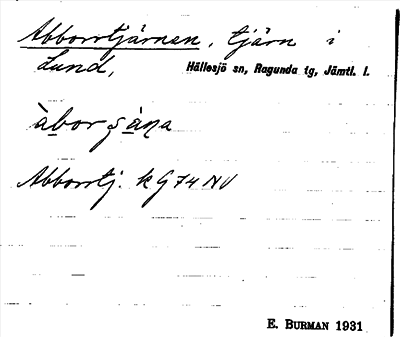 Abborrtjärnen, tjärn i
Lund, Hällesjö sn, Ragunda tg, Jämtl. l.
àbor ʂäṇa
Abborrtj. k G 74 NV
E. BURMAN 1931